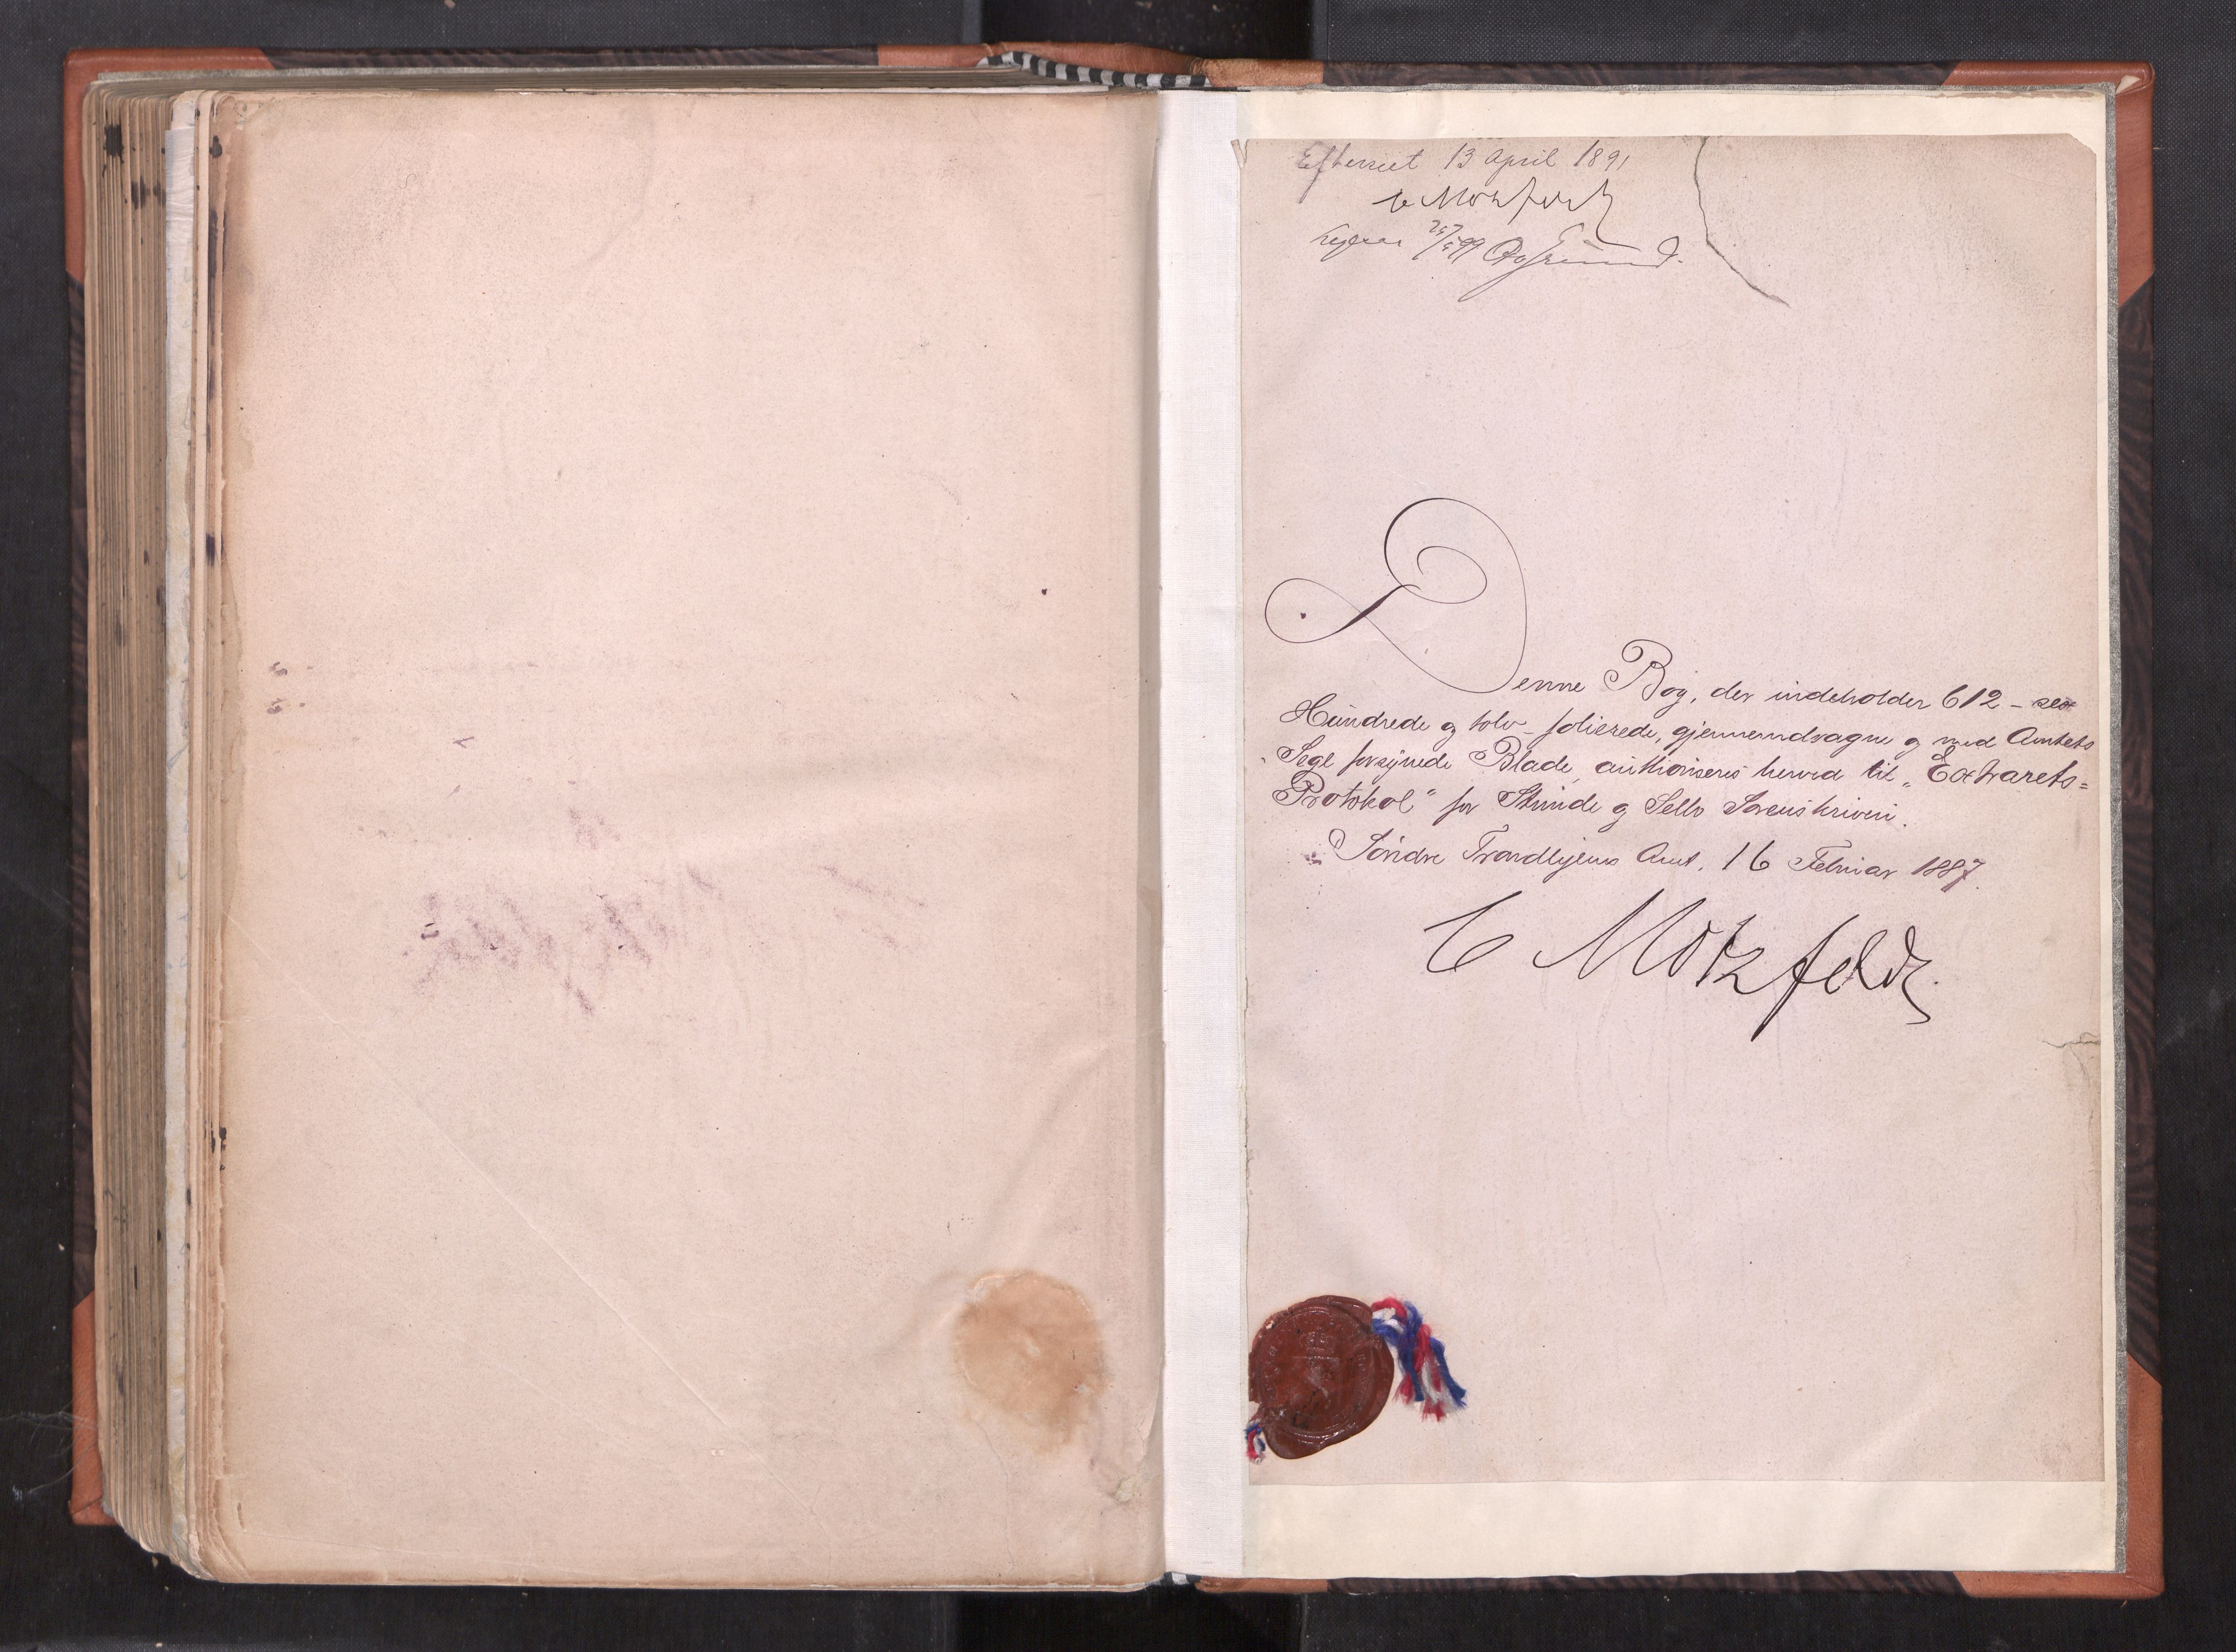 Efterseet 13 April 1891
C Motzfeldt
Denne Bog, der indeholder 612 - sex
Hundrede og tolv - folierede, gjennemdragne og med Amtets
Segl forsynede Blade, authoriseres herved til „Extrarets=
Protokol" for Strinde og Selbo Sorenskriveri.
Søndre Trondhjems Amt, 16 Februar 1887.
C Motzfeldt.